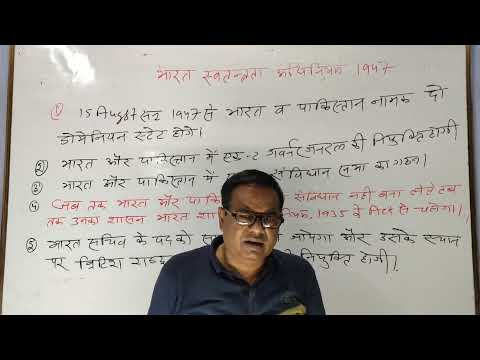 भारत स्वतन्त्रता अधिनियम 1947
① 15 August सन् 1947 से भारत व पाकिस्तान नामक दो
डोमेनियन स्टेट होंगे।
② भारत और पाकिस्तान में एक-2 गवर्नर जनरल की नियुक्ति होगी
③ भारत और पाकिस्तान में संविधान सभा का गठन।
④ जब तक भारत और पाकि संविधान नहीं बना लेते तब
तक उनका शासन भारत शा 1935 के
⑤ भारत सचिव के पद को जायेगा और उसके स्थान
पर ब्रिटिश नियुक्ति होगी।